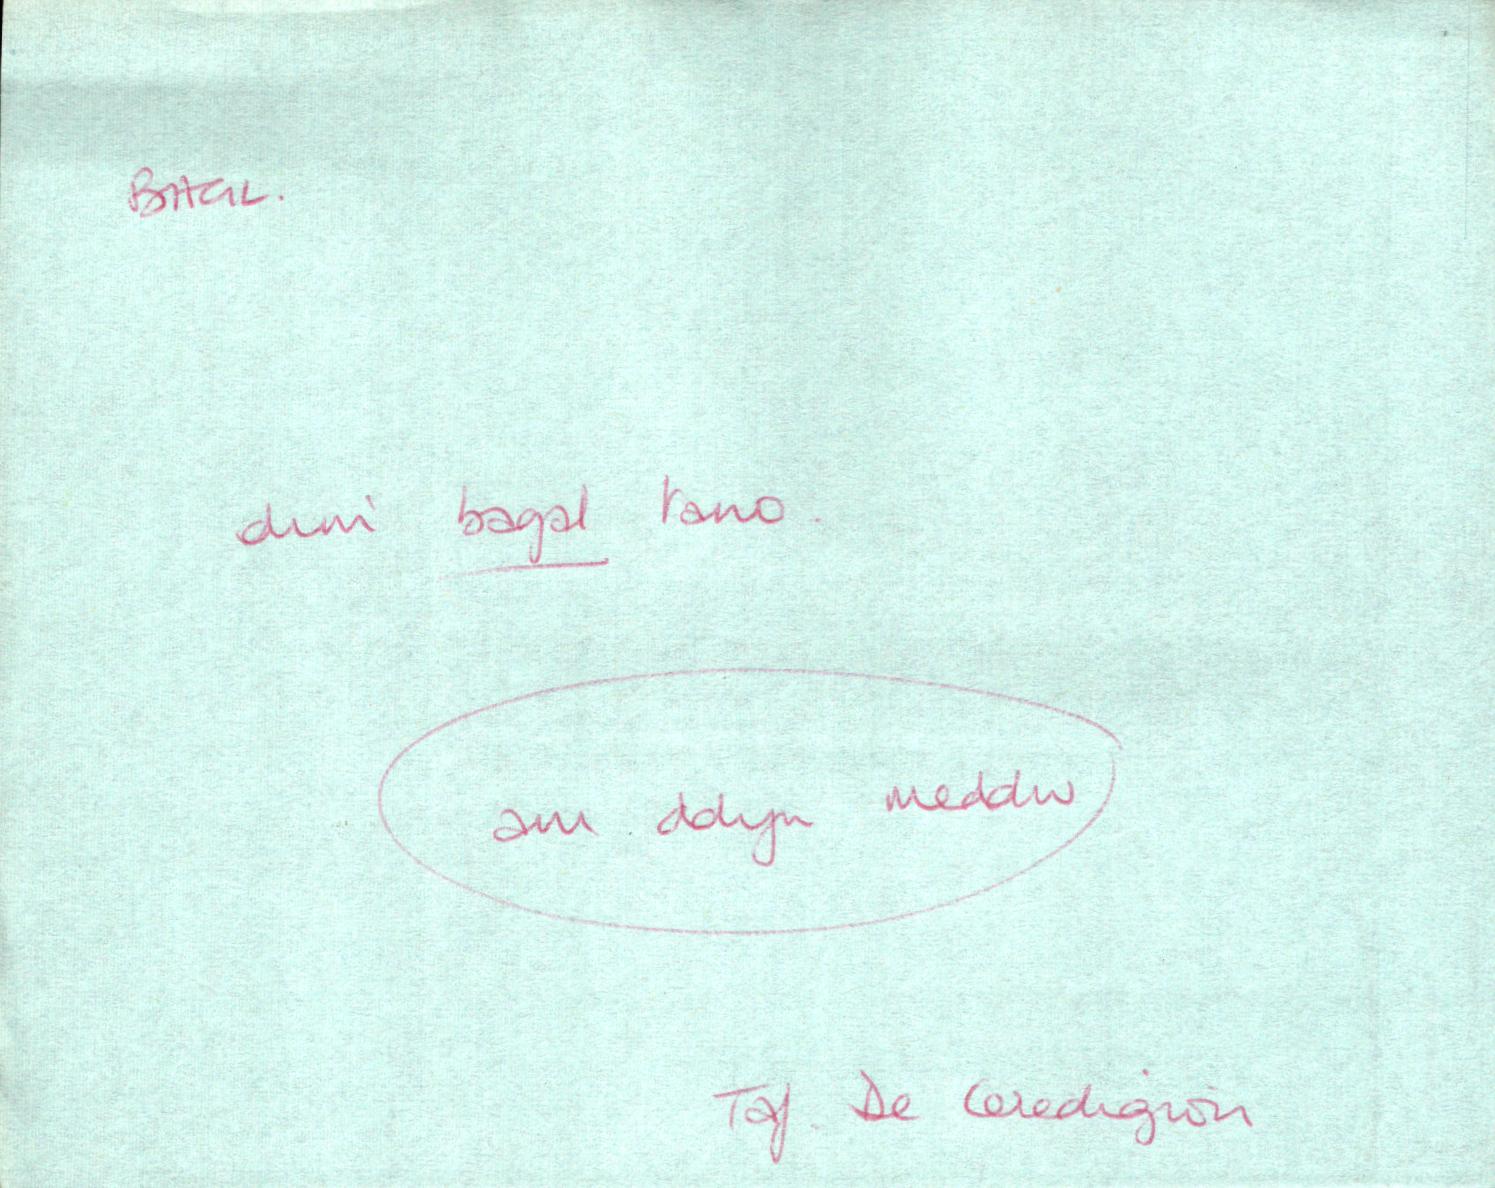 BAGL.
dim bagal tano.
am ddyn meddw
Taf. De Ceredigion